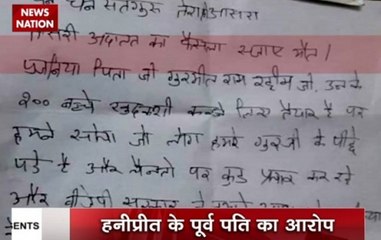 NEWS
NATION
धन धन सतगुरु तेरा आसरा
तीसरी अदालत का फैसला सजाए मौत।
पिता जी गुरमीत राम रहीम जी, उनके
२०० बच्चे खुदकशी करने लिए तैयार है पर
हमने सोचा जो लोग हमारे गुरुजी के पीछे
पड़े है और चैनलो पर कुछ कर रहे
और बीजेपी सरकार
ENTS
हनीप्रीत के पूर्व पति का आरोप